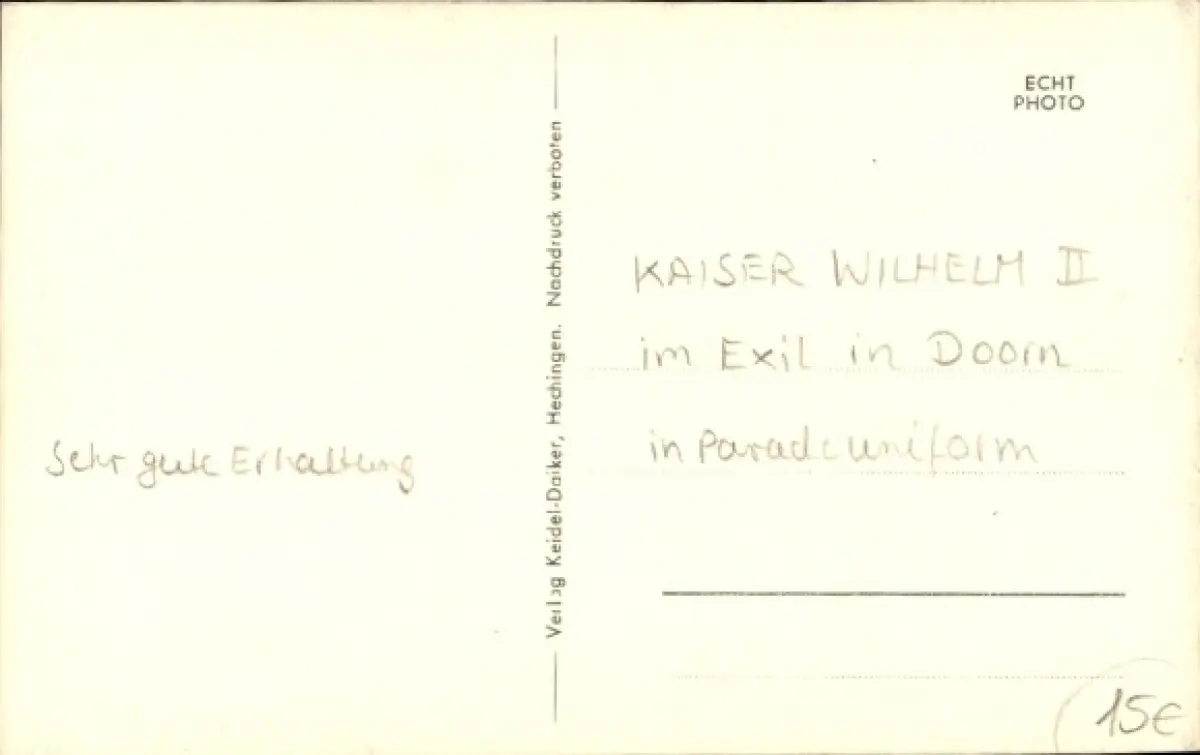 Sehr gute Erhaltung
Verlag Keidel-Daiker, Hechingen. Nachdruck verboten
ECHT
PHOTO
KAISER WILHELM II
im Exil in Doorn
in Paradeuniform
15€